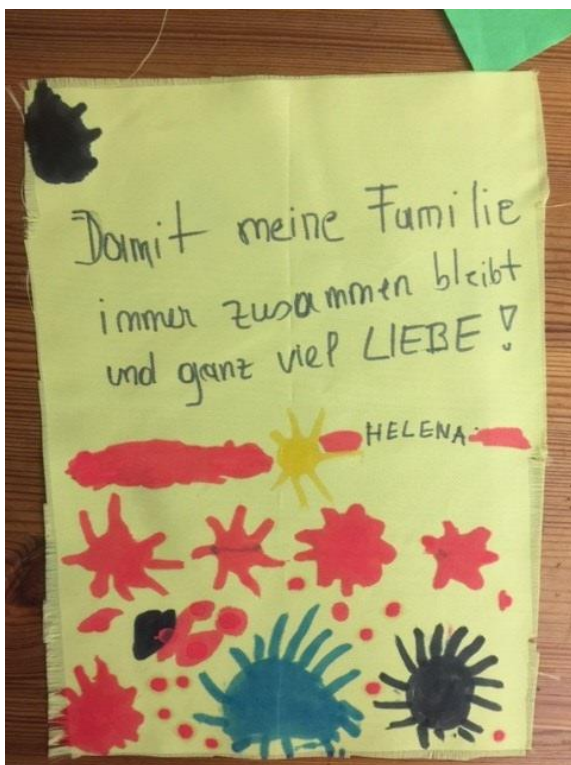 Damit meine Familie
immer zusammen bleibt
und ganz viel LIEBE!
HELENA